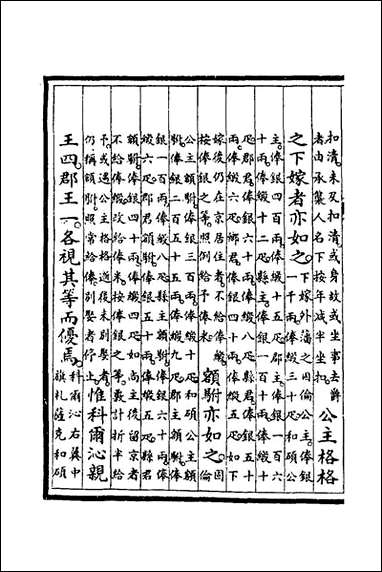 扣清未及扣清或身故或坐事去爵
者由承襲人名下按年減半坐扣
公主格格
之下嫁者亦如之
下嫁外藩之固倫公主俸銀
一千兩俸緞三十疋和碩公
主俸銀四百兩俸緞十五疋郡主俸銀一百六
十兩俸緞十二疋縣主俸銀一百一十兩俸緞十
疋郡君俸銀六十兩俸緞八疋縣君俸銀五十
兩俸緞六疋鄉君俸銀四十兩俸緞五疋如下
嫁後仍在京居住者不給俸緞
按俸銀之等照例給予俸米
額駙亦如之
固
倫
公主額駙俸銀三百兩俸緞十疋和碩公主額
駙俸銀二百五十五兩俸緞九疋郡主額駙俸
銀一百兩俸緞八疋縣主額駙俸銀六十兩俸
緞六疋郡君額駙俸銀五十兩俸緞五疋縣君
額駙俸銀四十兩俸緞四疋如尚主後留京者
不給俸緞改給俸米按俸銀之等計折半給
予或遇公主格格逝後未別娶者
仍稱額駙照常給俸別娶者停止
惟科爾沁親
王四郡王一各視其等而優焉
科爾沁右翼中
旗札薩克和碩